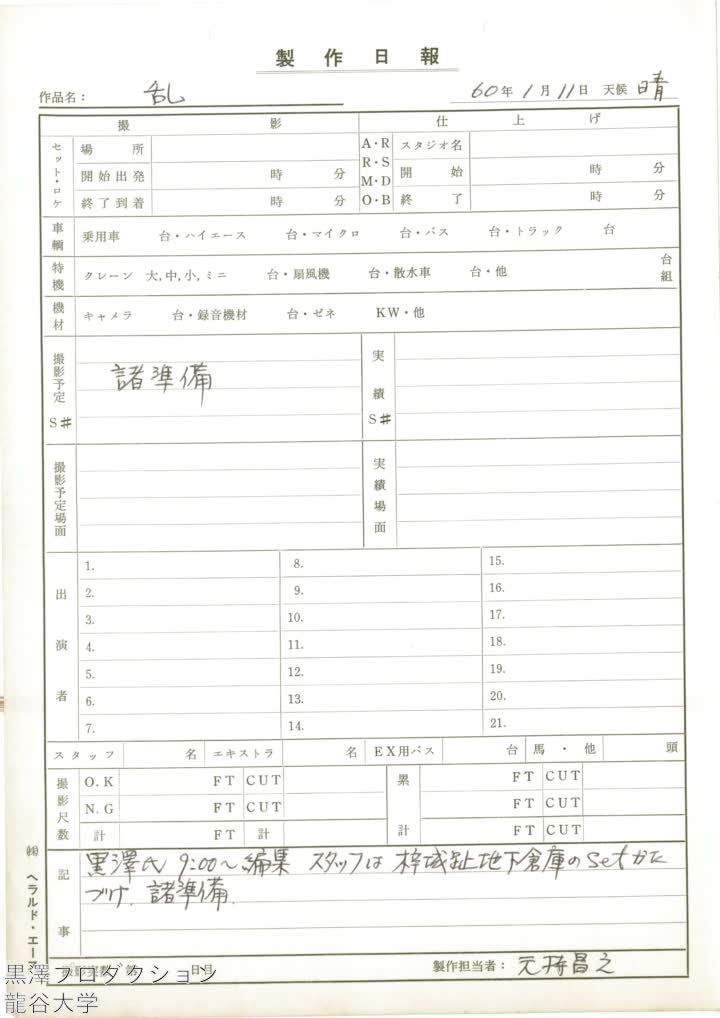 製作日報
作品名: 乱 60年 1月 11日 天候 晴
撮影 仕上げ
セット・ロケ 場所 A・R スタジオ名
開始出発 時 分 R・S M・D 開始 時 分
終了到着 時 分 O・B 終了 時 分
車輌 乗用車 台・ハイエース 台・マイクロ 台・バス 台・トラック 台
特機 クレーン 大,中,小,ミニ 台・扇風機 台・散水車 台・他 台組
機材 キャメラ 台・録音機材 台・ゼネ KW・他
撮影予定 S# 諸準備 実績 S#
撮影予定場面 実績場面
出演者
1. 8. 15.
2. 9. 16.
3. 10. 17.
4. 11. 18.
5. 12. 19.
6. 13. 20.
7. 14. 21.
スタッフ 名 エキストラ 名 EX用バス 台 馬・他 頭
撮影尺数 O.K FT CUT 累計 FT CUT
N.G FT CUT FT CUT
計 FT 計 FT CUT
記事 黒澤氏 9:00～編集 スタッフは 梓城趾地下倉庫のSetかた
づけ. 諸準備.
撮影実数 第 日目 製作担当者: 元持昌之
㈱ ヘラルド・エース
黒澤プロダクション
龍谷大学